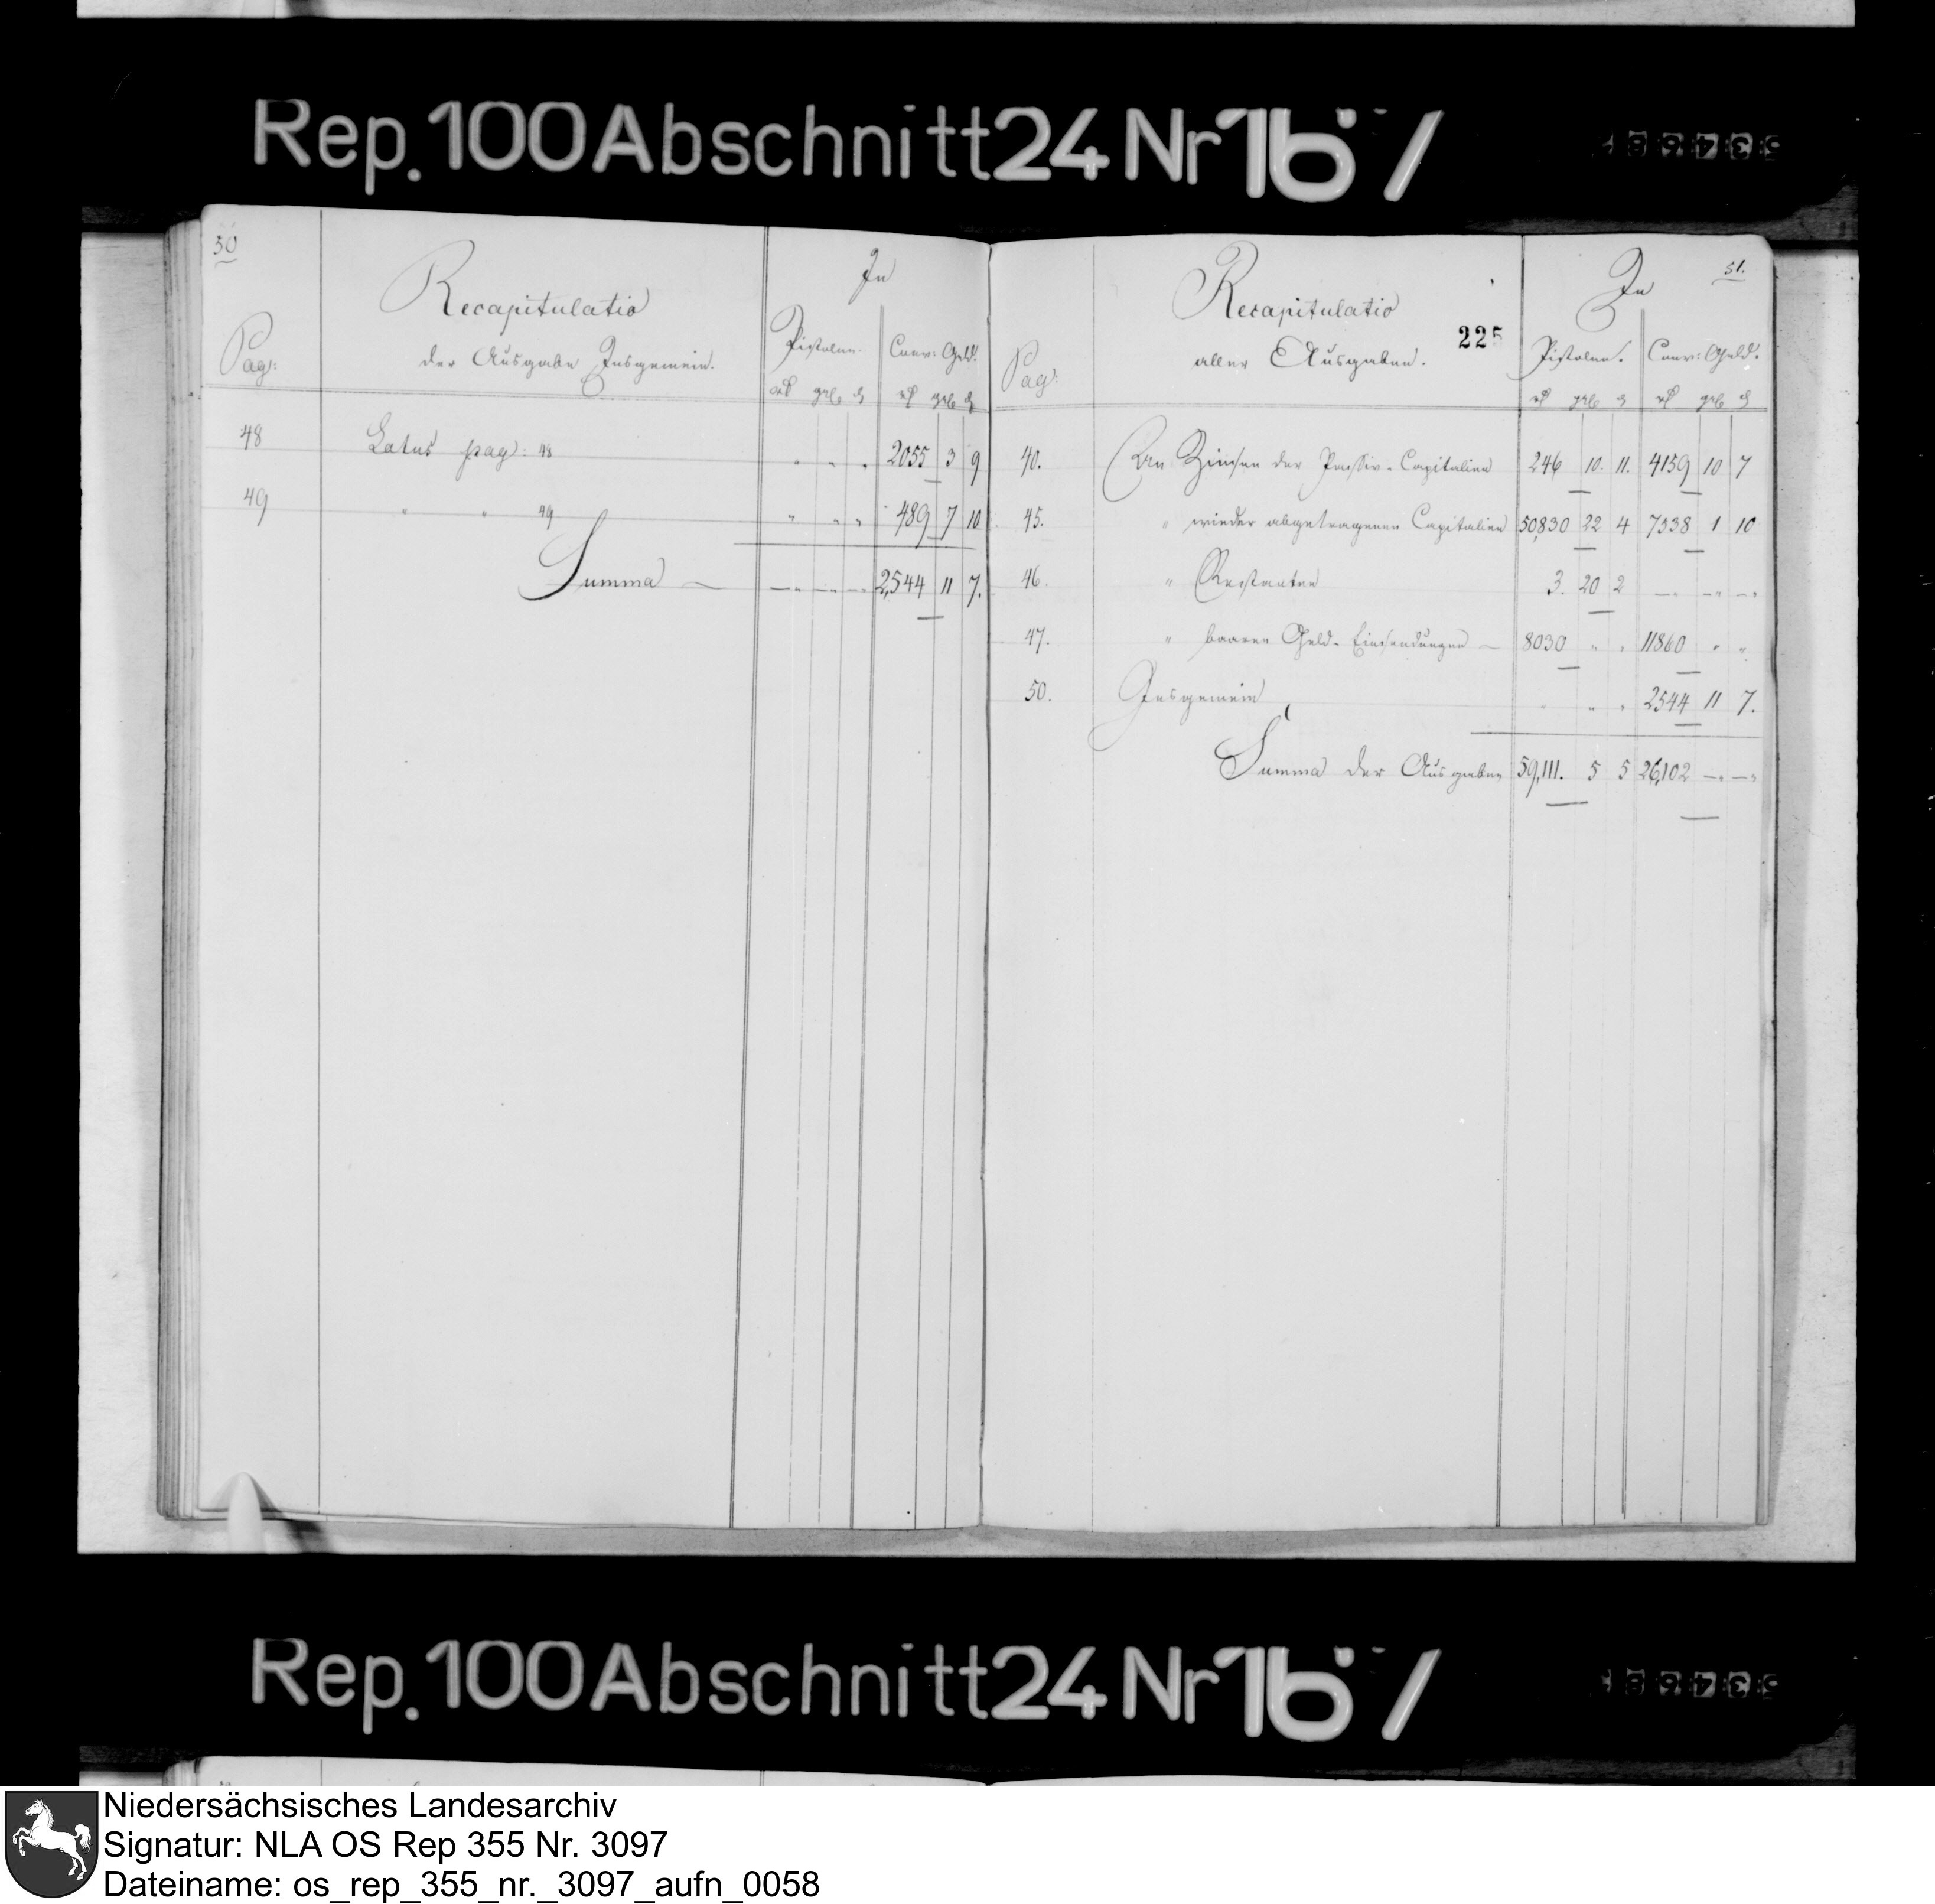 Rep. 100 Abschnitt 24 Nr 16 /
50
Pag:
Recapitulatio
der Ausgabe Insgemein.
In
Pistolen. Conv: Geld.
rt ggl d rt ggl d
48 Latus pag: 48 " " " 2055 3 9
49 " " 49 " " " 489 7 10
Summa — — — — 2,544 11 7.
51.
225
Pag:
Recapitulatio
aller Ausgaben.
In
Pistolen. Conv: Geld.
rt ggl d rt ggl d
40. An Zinsen der Passiv-Capitalien 246 10. 11. 4159 10 7
45. " wieder abgetragenen Capitalien 50,830 22 4 7538 1 10
46. " Restanten 3. 20 2 — — —
47. " baaren Geld-Einsendungen — 8030 " " 11860 " "
50. Insgemein " " " 2544 11 7.
Summa der Ausgaben 59,111. 5 5 26,102 — —
Rep. 100 Abschnitt 24 Nr 16 /
Niedersächsisches Landesarchiv
Signatur: NLA OS Rep 355 Nr. 3097
Dateiname: os_rep_355_nr._3097_aufn_0058